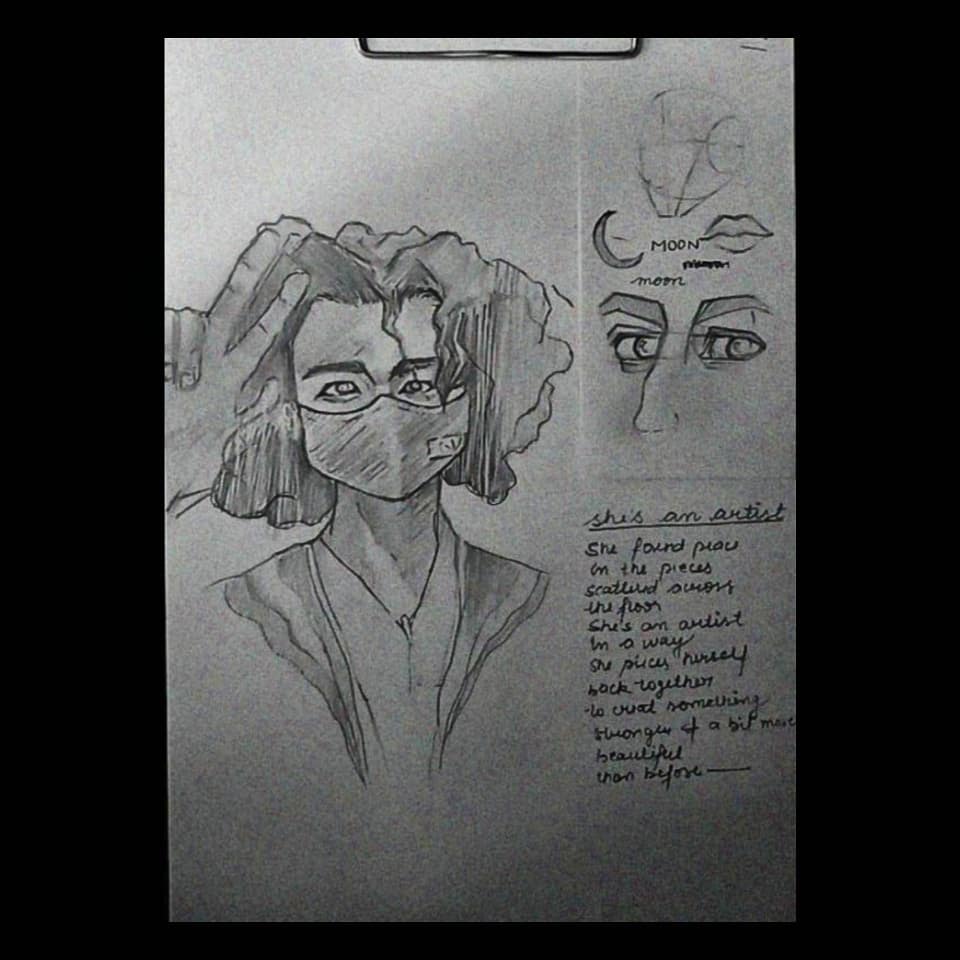 MOON
moon
she's an artist
She found peace
in the pieces
scattered across
the floor
She's an artist
in a way
she pieces herself
back together
to creat something
stronger & a bit more
beautiful
than before